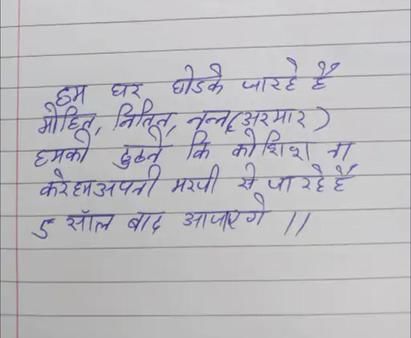 हम घर छोडके जारहे हैं
मोहित, नितिन, नन्नु(अरमार)
हमको ढुढने कि कोशिश ना
करे हम अपनी मरजी से जा रहे है
5 सॉल बाद आजाएगे ||